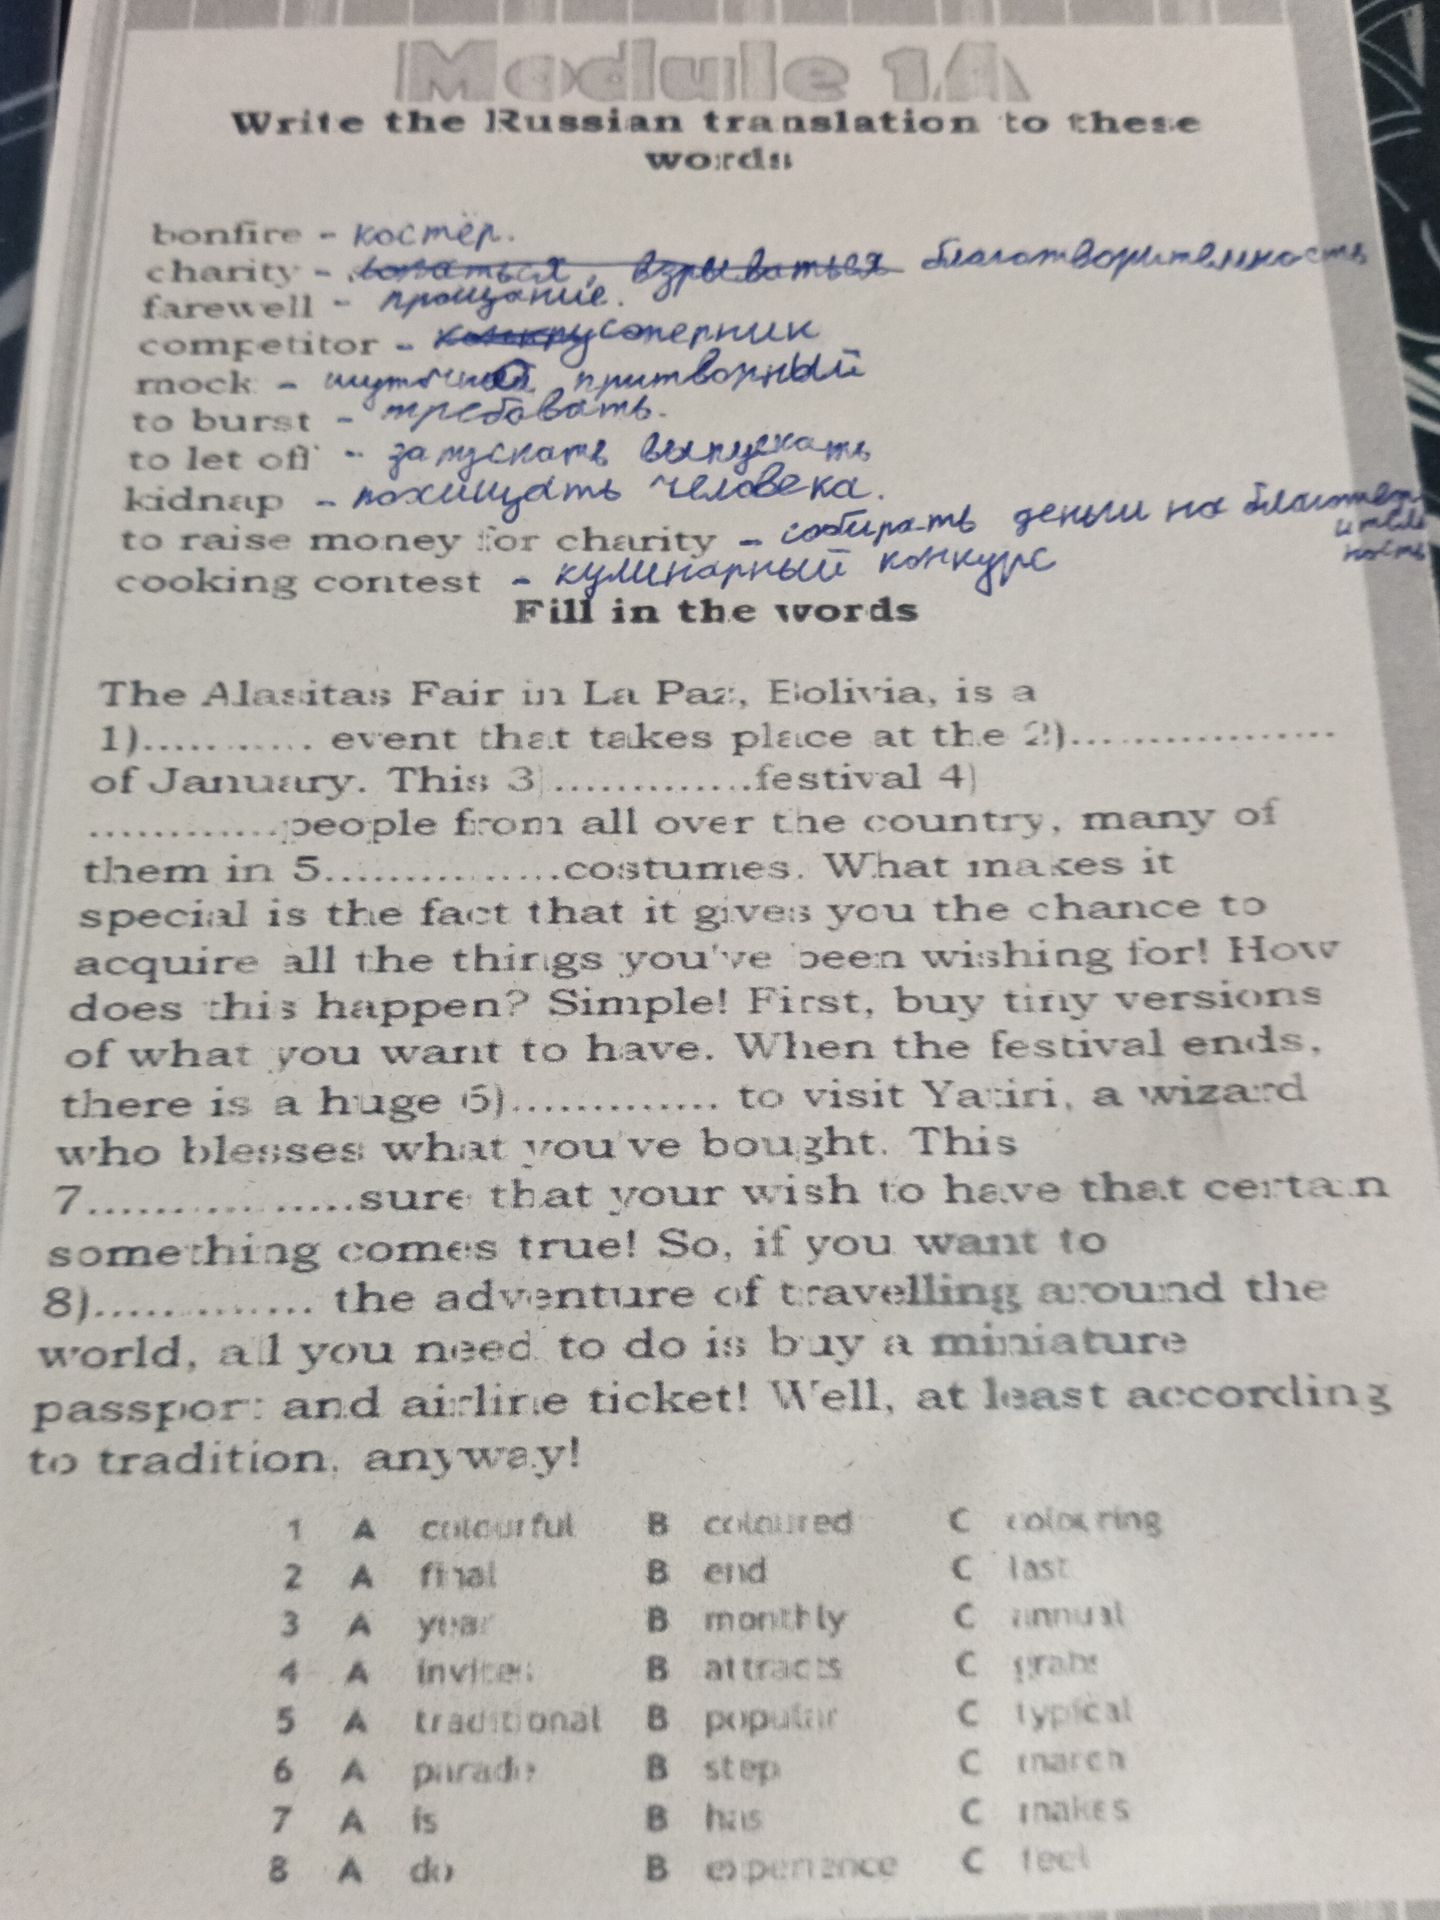 Module 1A
Write the Russian translation to these
words
bonfire - костёр.
charity - взрываться благотворительность
farewell - прощание.
competitor - соперник
mock - притворный
to burst - требовать.
to let off - запускать выпускать
kidnap - похищать человека.
to raise money for charity - собирать деньги на благотворительность
cooking contest - кулинарный конкурс
Fill in the words
The Alasitas Fair in La Paz, Bolivia, is a
1)............ event that takes place at the 2)..................
of January. This 3)..............festival 4)
.............people from all over the country, many of
them in 5................costumes. What makes it
special is the fact that it gives you the chance to
acquire all the things you've been wishing for! How
does this happen? Simple! First, buy tiny versions
of what you want to have. When the festival ends,
there is a huge 6).............. to visit Yatiri, a wizard
who blesses what you've bought. This
7..................sure that your wish to have that certain
something comes true! So, if you want to
8).............. the adventure of travelling around the
world, all you need to do is buy a miniature
passport and airline ticket! Well, at least according
to tradition, anyway!
1 A colourful B coloured C colouring
2 A final B end C last
3 A year B monthly C annual
4 A invites B attracts C grabs
5 A traditional B popular C typical
6 A parade B step C march
7 A is B has C makes
8 A do B experience C feel